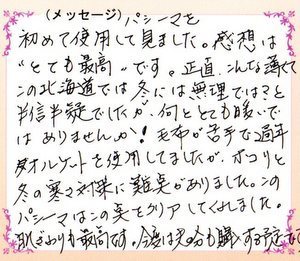 (メッセージ) パシーマを
初めて使用して見ました。感想は
"とても最高"です。正直、こんな薄くて
この北海道では冬には無理では?と
半信半疑でしたが、何ととも暖いで
はありませんか!毛布が苦手で通年
タオルケットを使用してましたが、
冬の寒さ対策に難点がありました。この
パシーマはこの点をクリアしてくれました。
肌ざわりも最高です。今度は